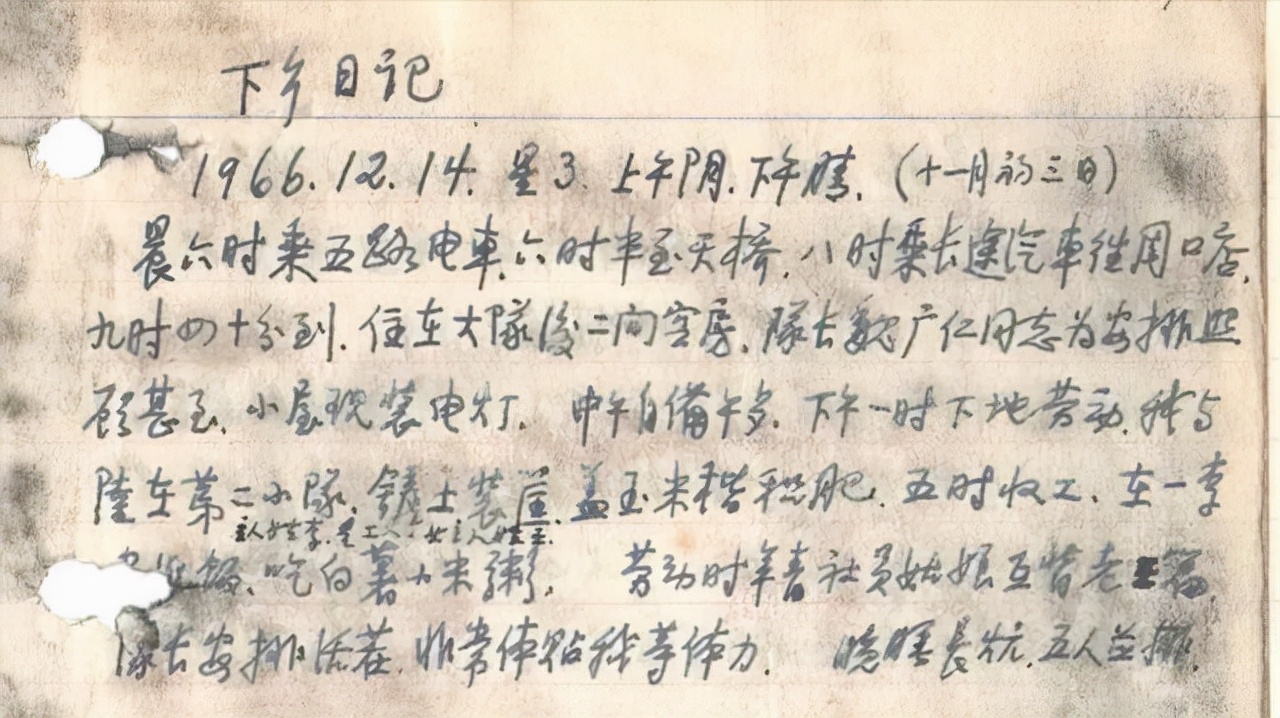 下乡日记
1966.12.14. 星3. 上午阴.下午晴.(十一月初三日)
晨六时乘五路电車.六时半至天桥.八时乘长途汽車往周口店.
九时四十分到.住在大隊後二间客房.隊长魏广仁同志为安排照
顾甚至.小屋现装电灯.中午自備午歺.下午一时下地劳动.我与
陸在第二小隊.鏟土装筐.盖玉米楷积肥.五时收工.在一李
主人姓李.是工人.女主人姓王.
飯.吃白薯小米粥.劳动时年青社员姑娘互背老三篇.
隊长安排活茬.非常体贴我等体力.晚睡長炕.五人並排.